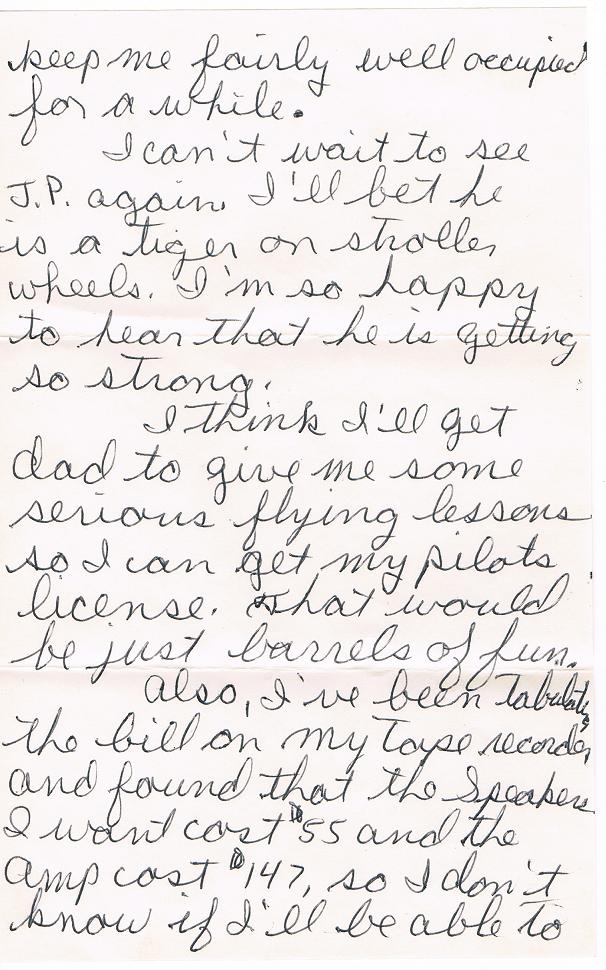 keep me fairly well occupied
for a while.
I can't wait to see
J.P. again. I'll bet he
is a tiger on stroller
wheels. I'm so happy
to hear that he is getting
so strong.
I think I'll get
dad to give me some
serious flying lessons
so I can get my pilots
license. That would
be just barrels of fun.
Also, I've been tabulating
the bill on my tape recorder
and found that the speakers
I want cost $55 and the
amp cost $147, so I don't
know if I'll be able to